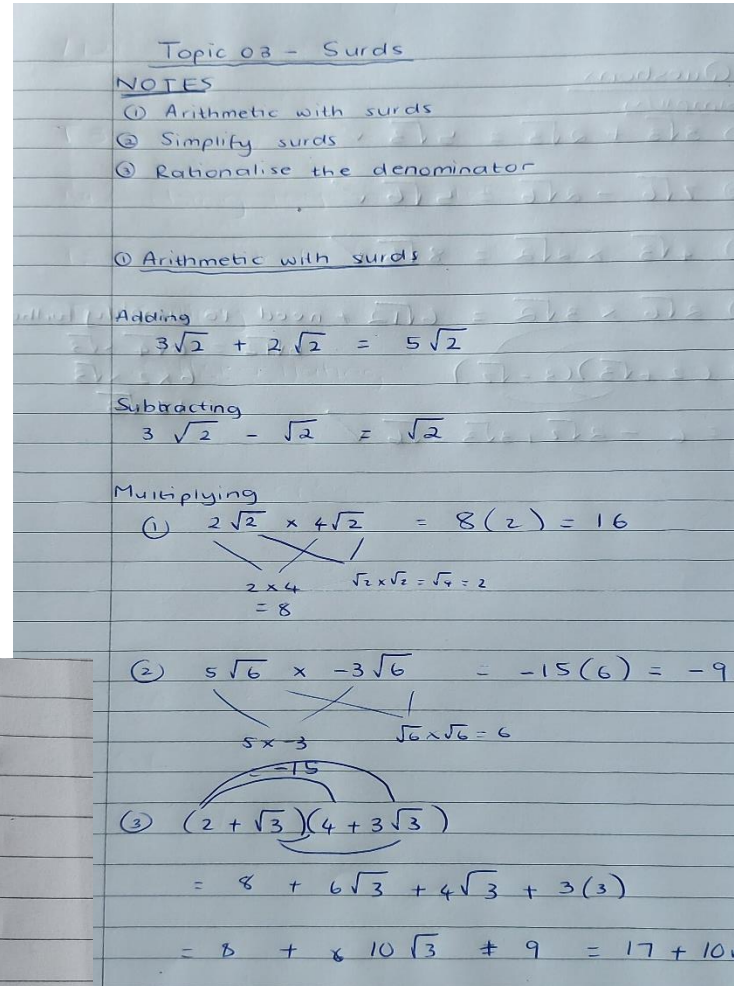 Topic 03 - Surds
NOTES
① Arithmetic with surds
② Simplify surds
③ Rationalise the denominator
① Arithmetic with surds
Adding
3√2 + 2√2 = 5√2
Subtracting
3√2 - √2 = √2
Multiplying
① 2√2 × 4√2 = 8(2) = 16
2 × 4 √2 × √2 = √4 = 2
= 8
② 5√6 × -3√6 = -15(6) = -9
5 × -3 √6 × √6 = 6
= -15
③ (2 + √3)(4 + 3√3)
= 8 + 6√3 + 4√3 + 3(3)
= 8 + 10√3 + 9 = 17 + 10